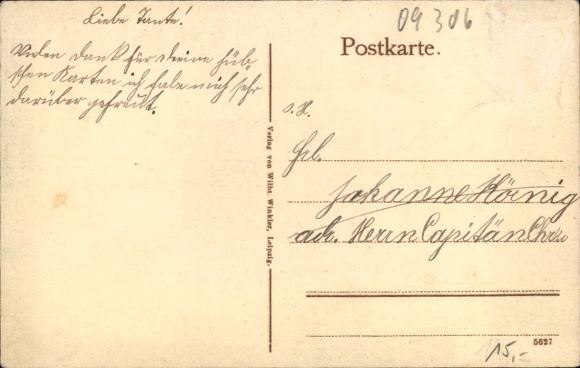 Liebe Tante!
Vielen Dank für Deine hüb-
schen Karten ich habe mich sehr
darüber gefreut.
09 306
Postkarte.
S. H.
Frl.
Johanne König
adr. Herrn Capitän
Verlag von Wilh. Winkler, Leipzig.
5627
15,-